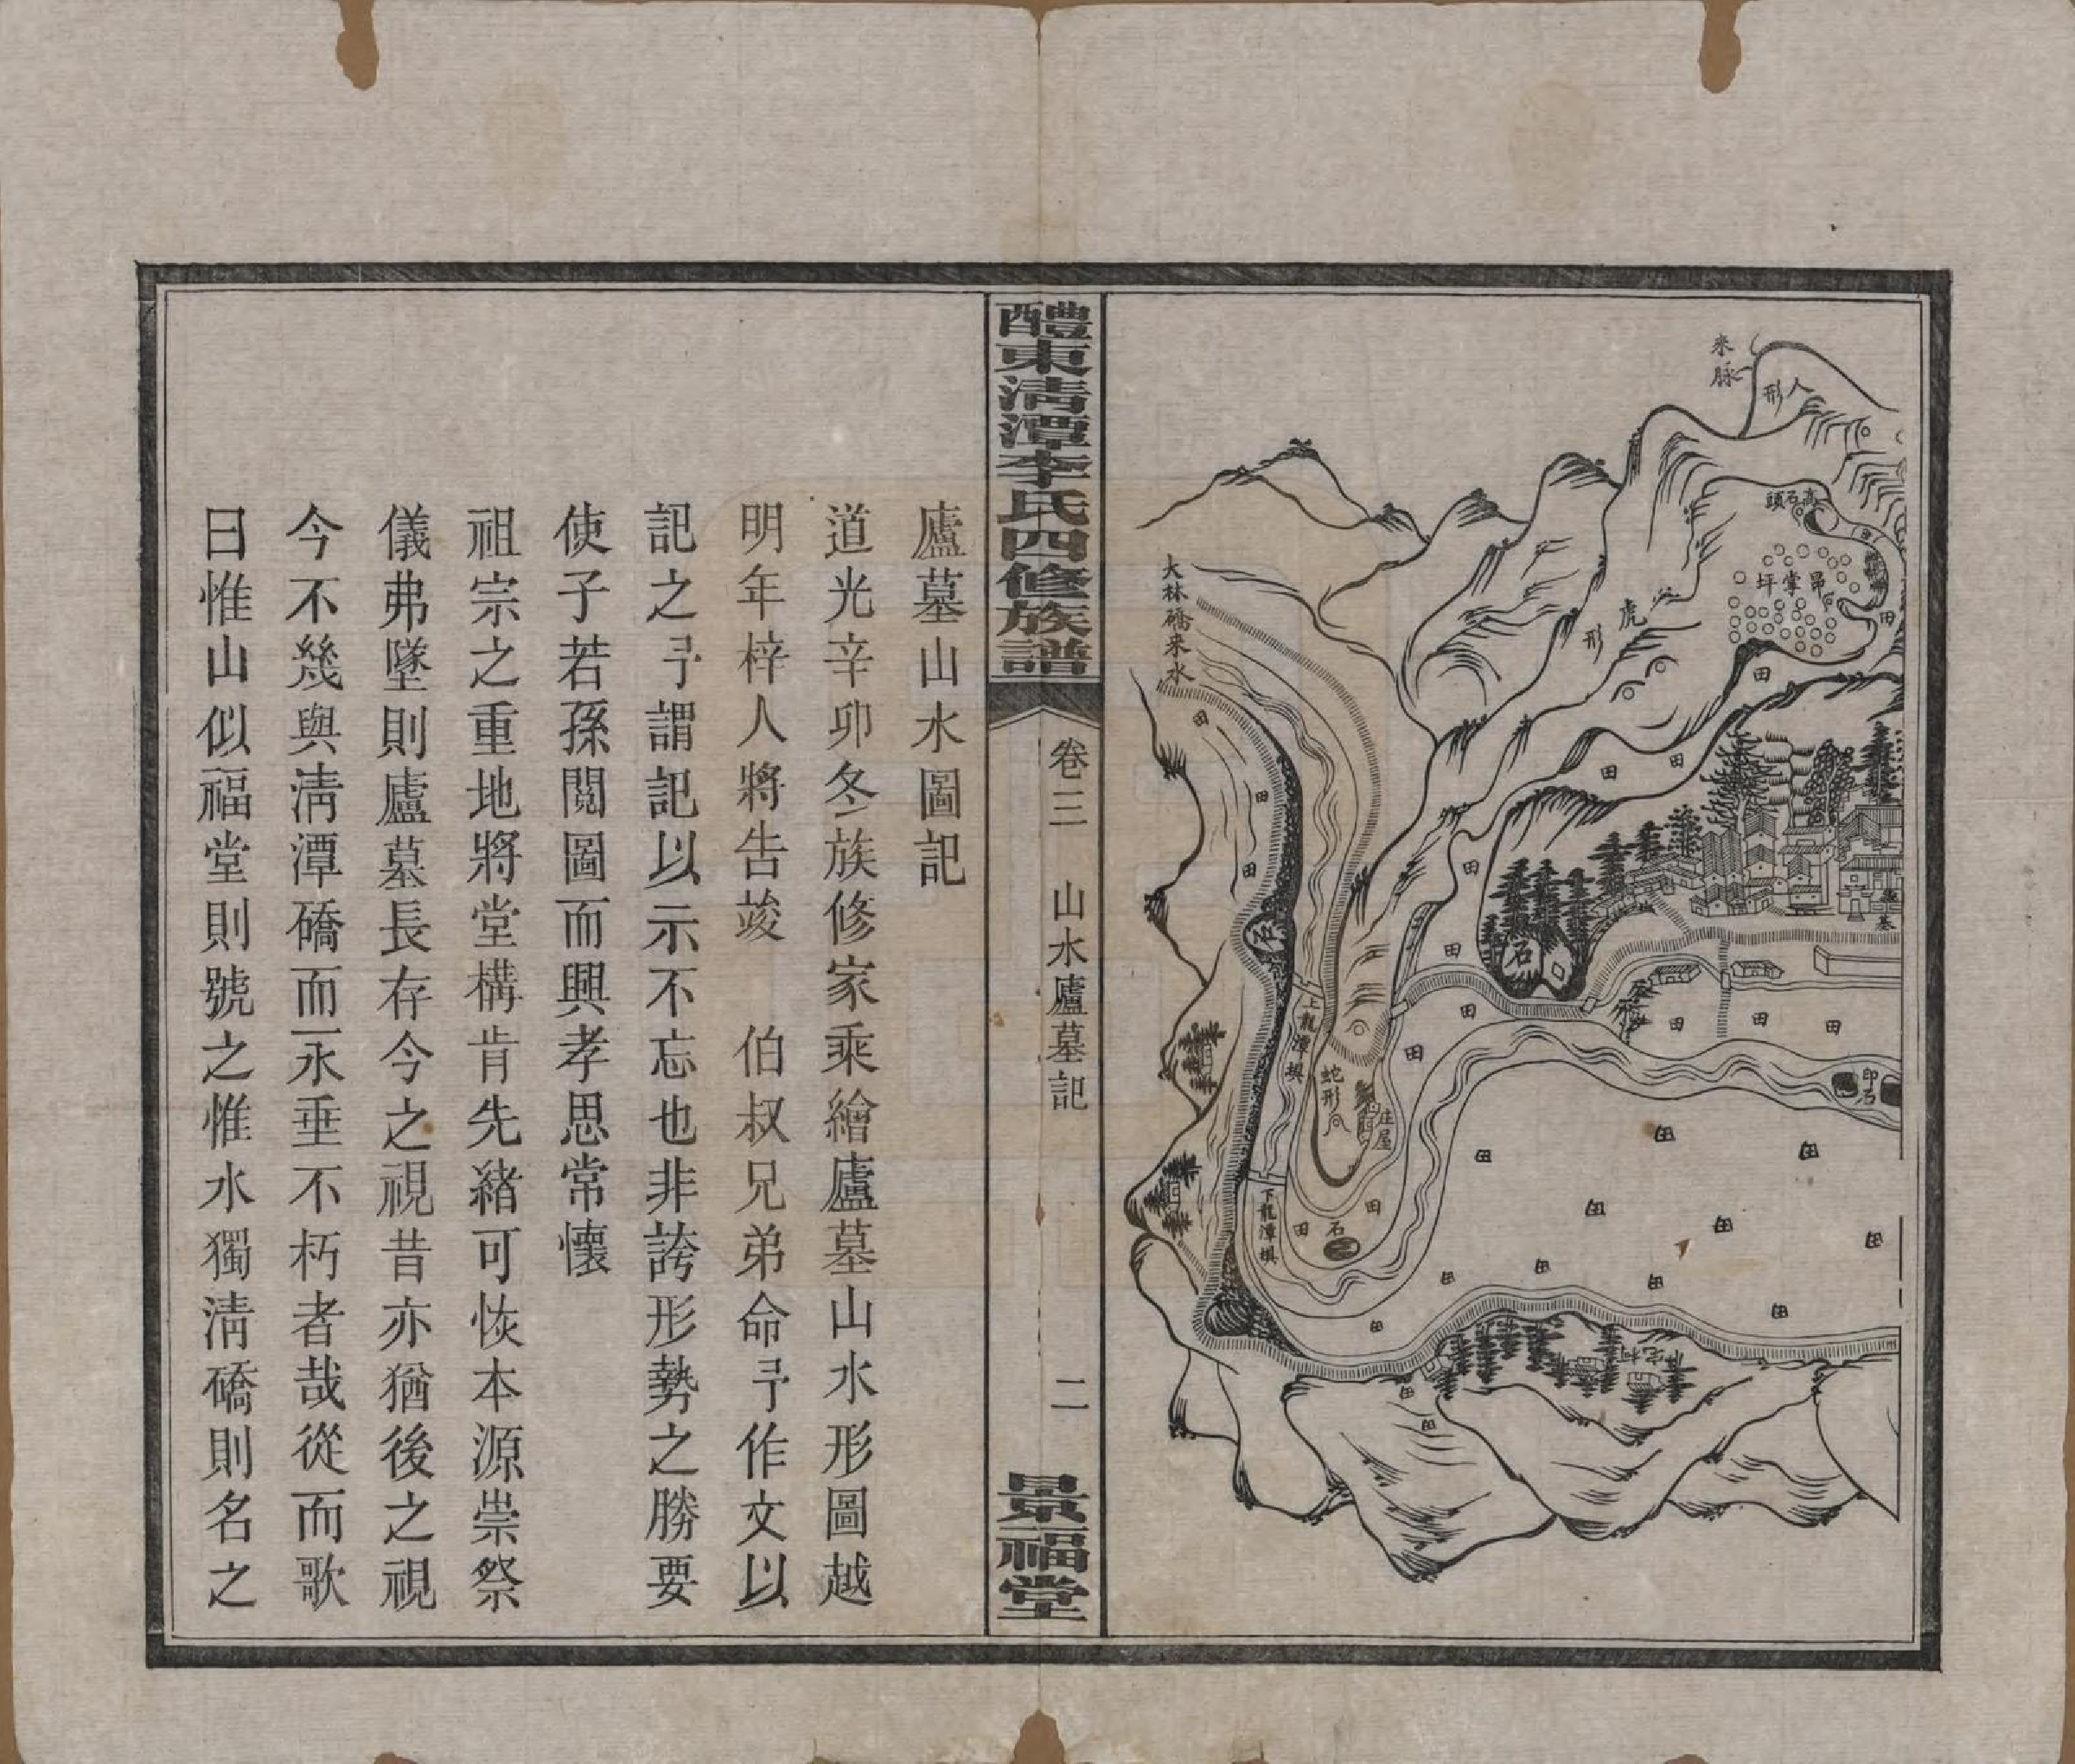 來脉
人形
高石頭
昂掌坪
田
虎形
大林礄來水
田
田
田
田
田
田
田
田
石
石
上龍潭埧
蛇形
庄屋
下龍潭埧
石
田
田
田
田
田
田
田
印石
田
田
田
田
田
田
田
田
田
田
田
田
田
田
醴東淸潭李氏四修族譜
卷三
山水廬墓記
二
景福堂
廬墓山水圖記
道光辛卯冬族修家乘繪廬墓山水形圖越
明年梓人將告竣　伯叔兄弟命予作文以
記之予謂記以示不忘也非誇形勢之勝要
使子若孫閱圖而興孝思常懷
祖宗之重地將堂構肯先緒可恢本源崇祭
儀弗墜則廬墓長存今之視昔亦猶後之視
今不幾與淸潭礄而永垂不朽者哉從而歌
曰惟山似福堂則號之惟水獨淸礄則名之